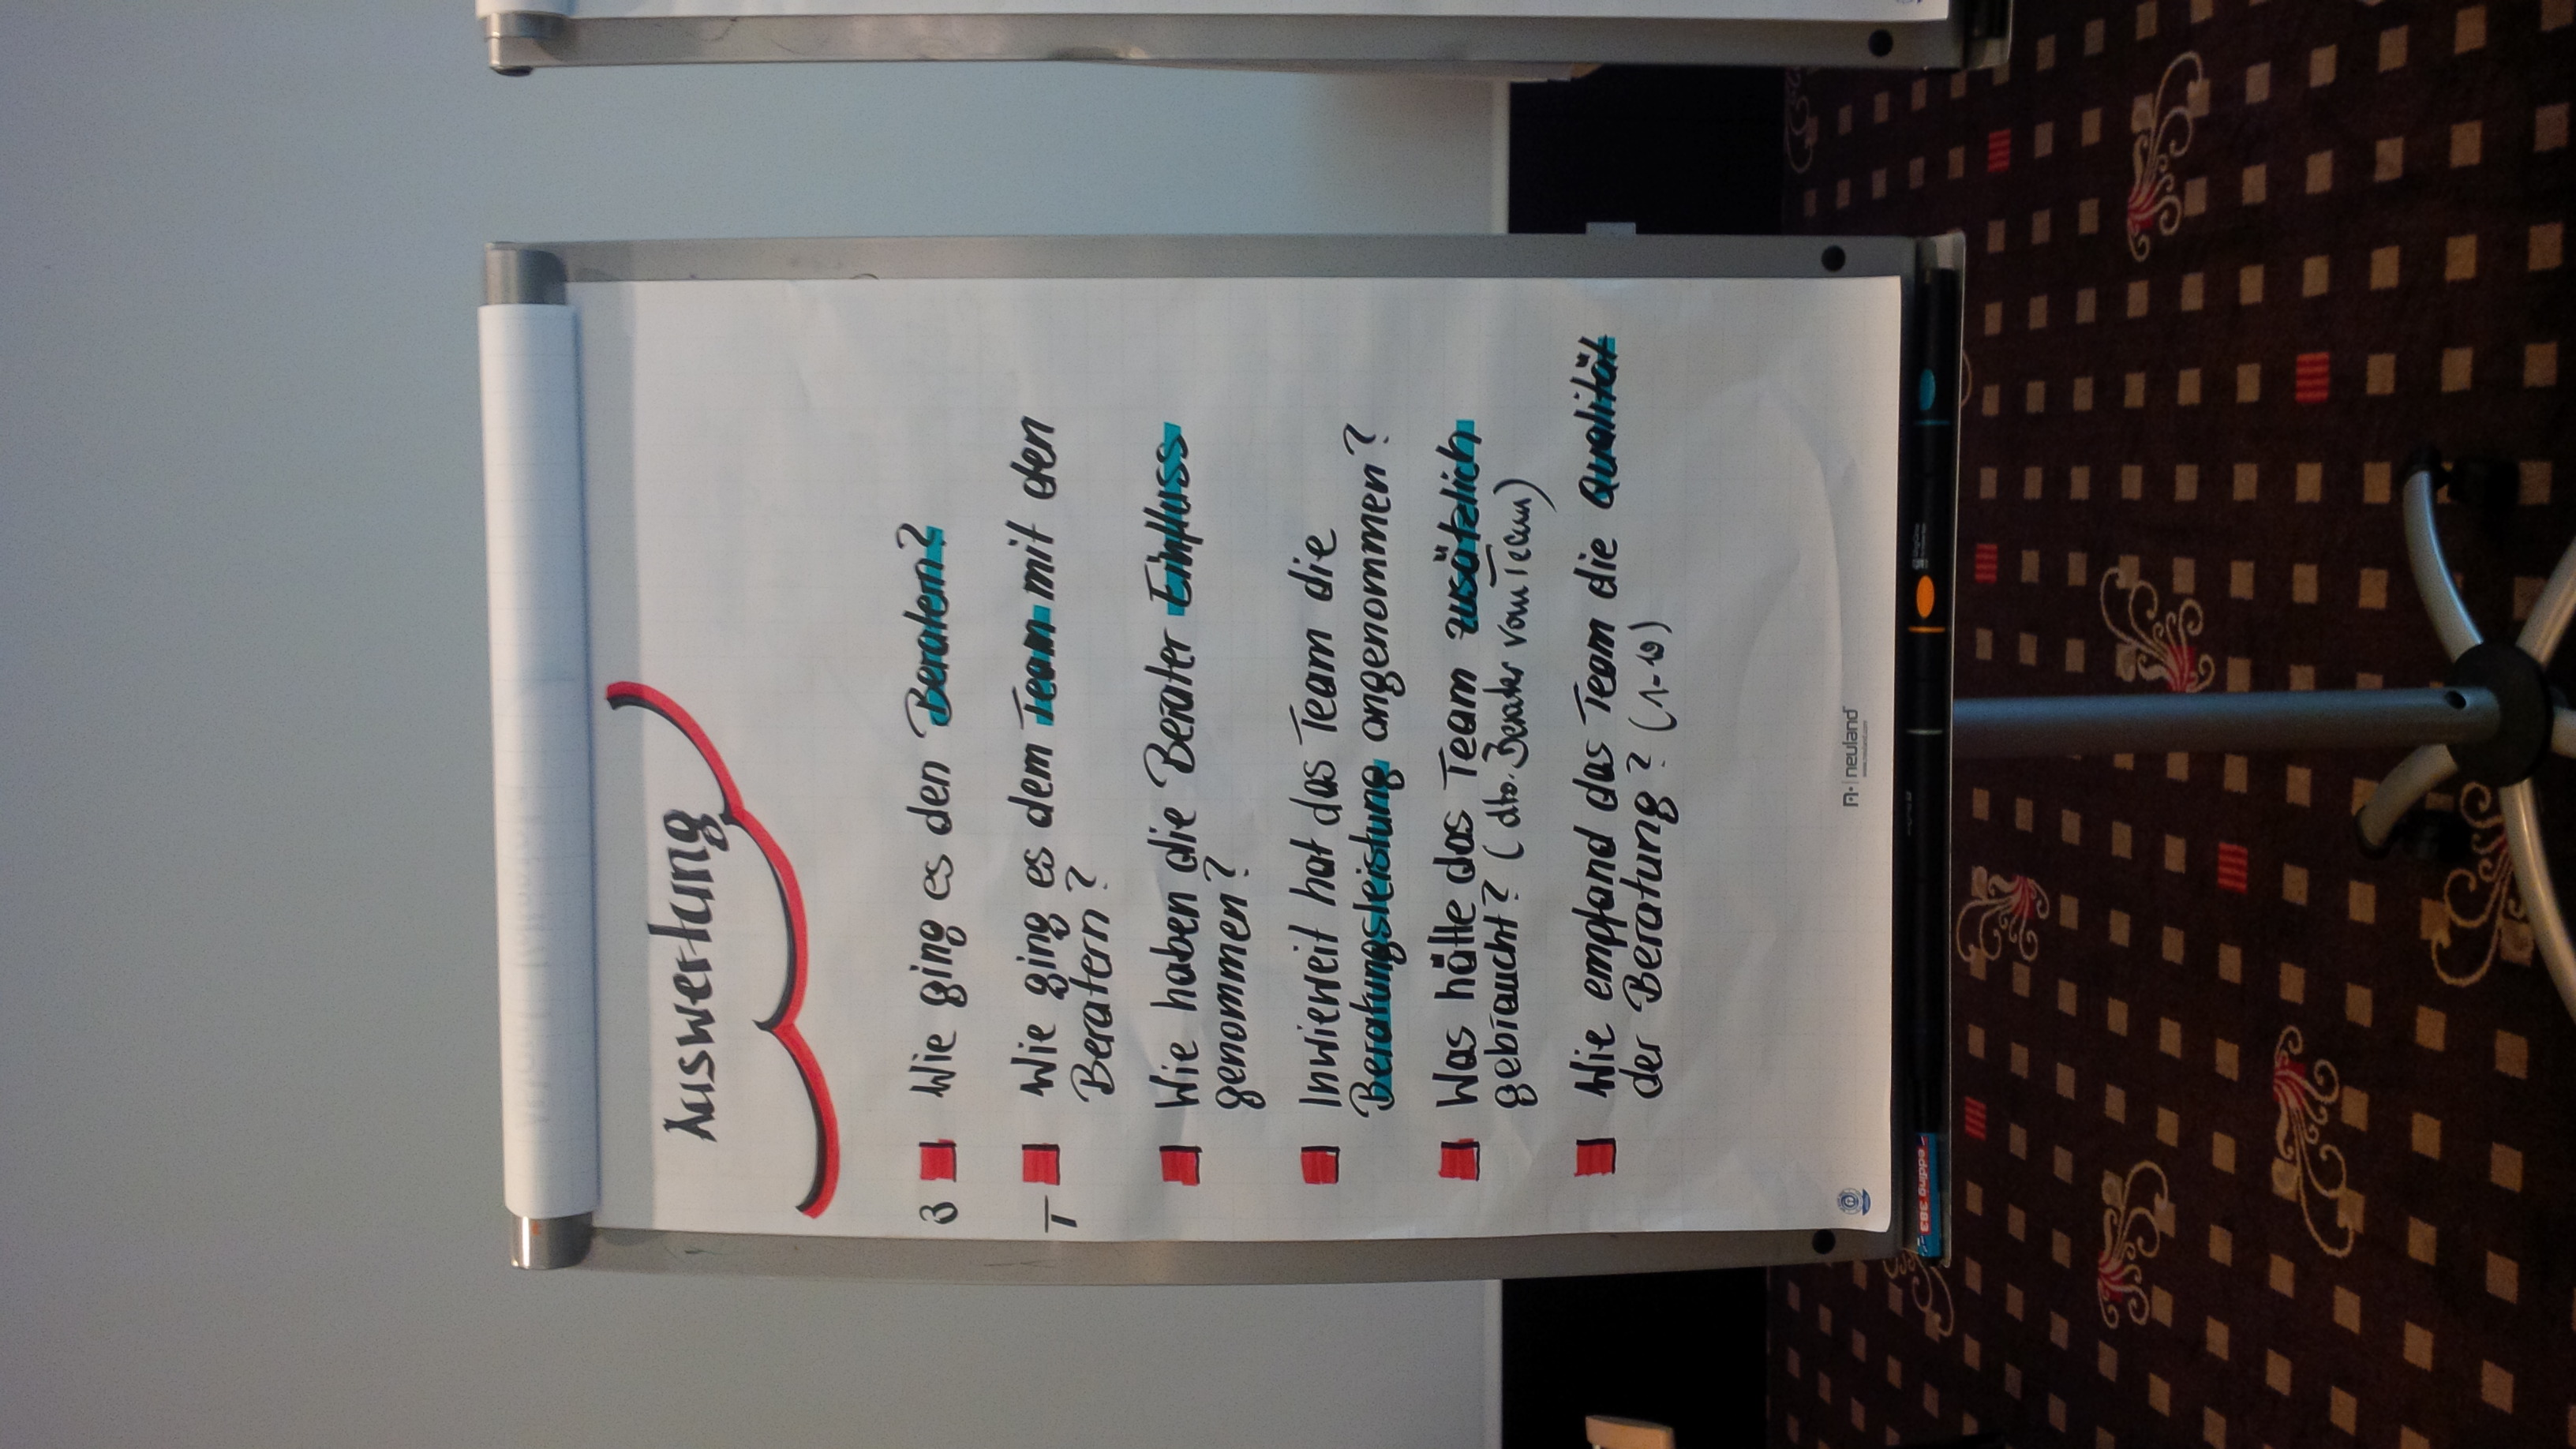 Auswertung
B Wie ging es den Beratern?
T Wie ging es dem Team mit den
Beratern?
Wie haben die Berater Einfluss
genommen?
Inwieweit hat das Team die
Beratungsleistung angenommen?
Was hätte das Team zusätzlich
gebraucht? (dto. Berater vom Team)
Wie empfand das Team die Qualität
der Beratung? (1-10)
neuland
edding 383